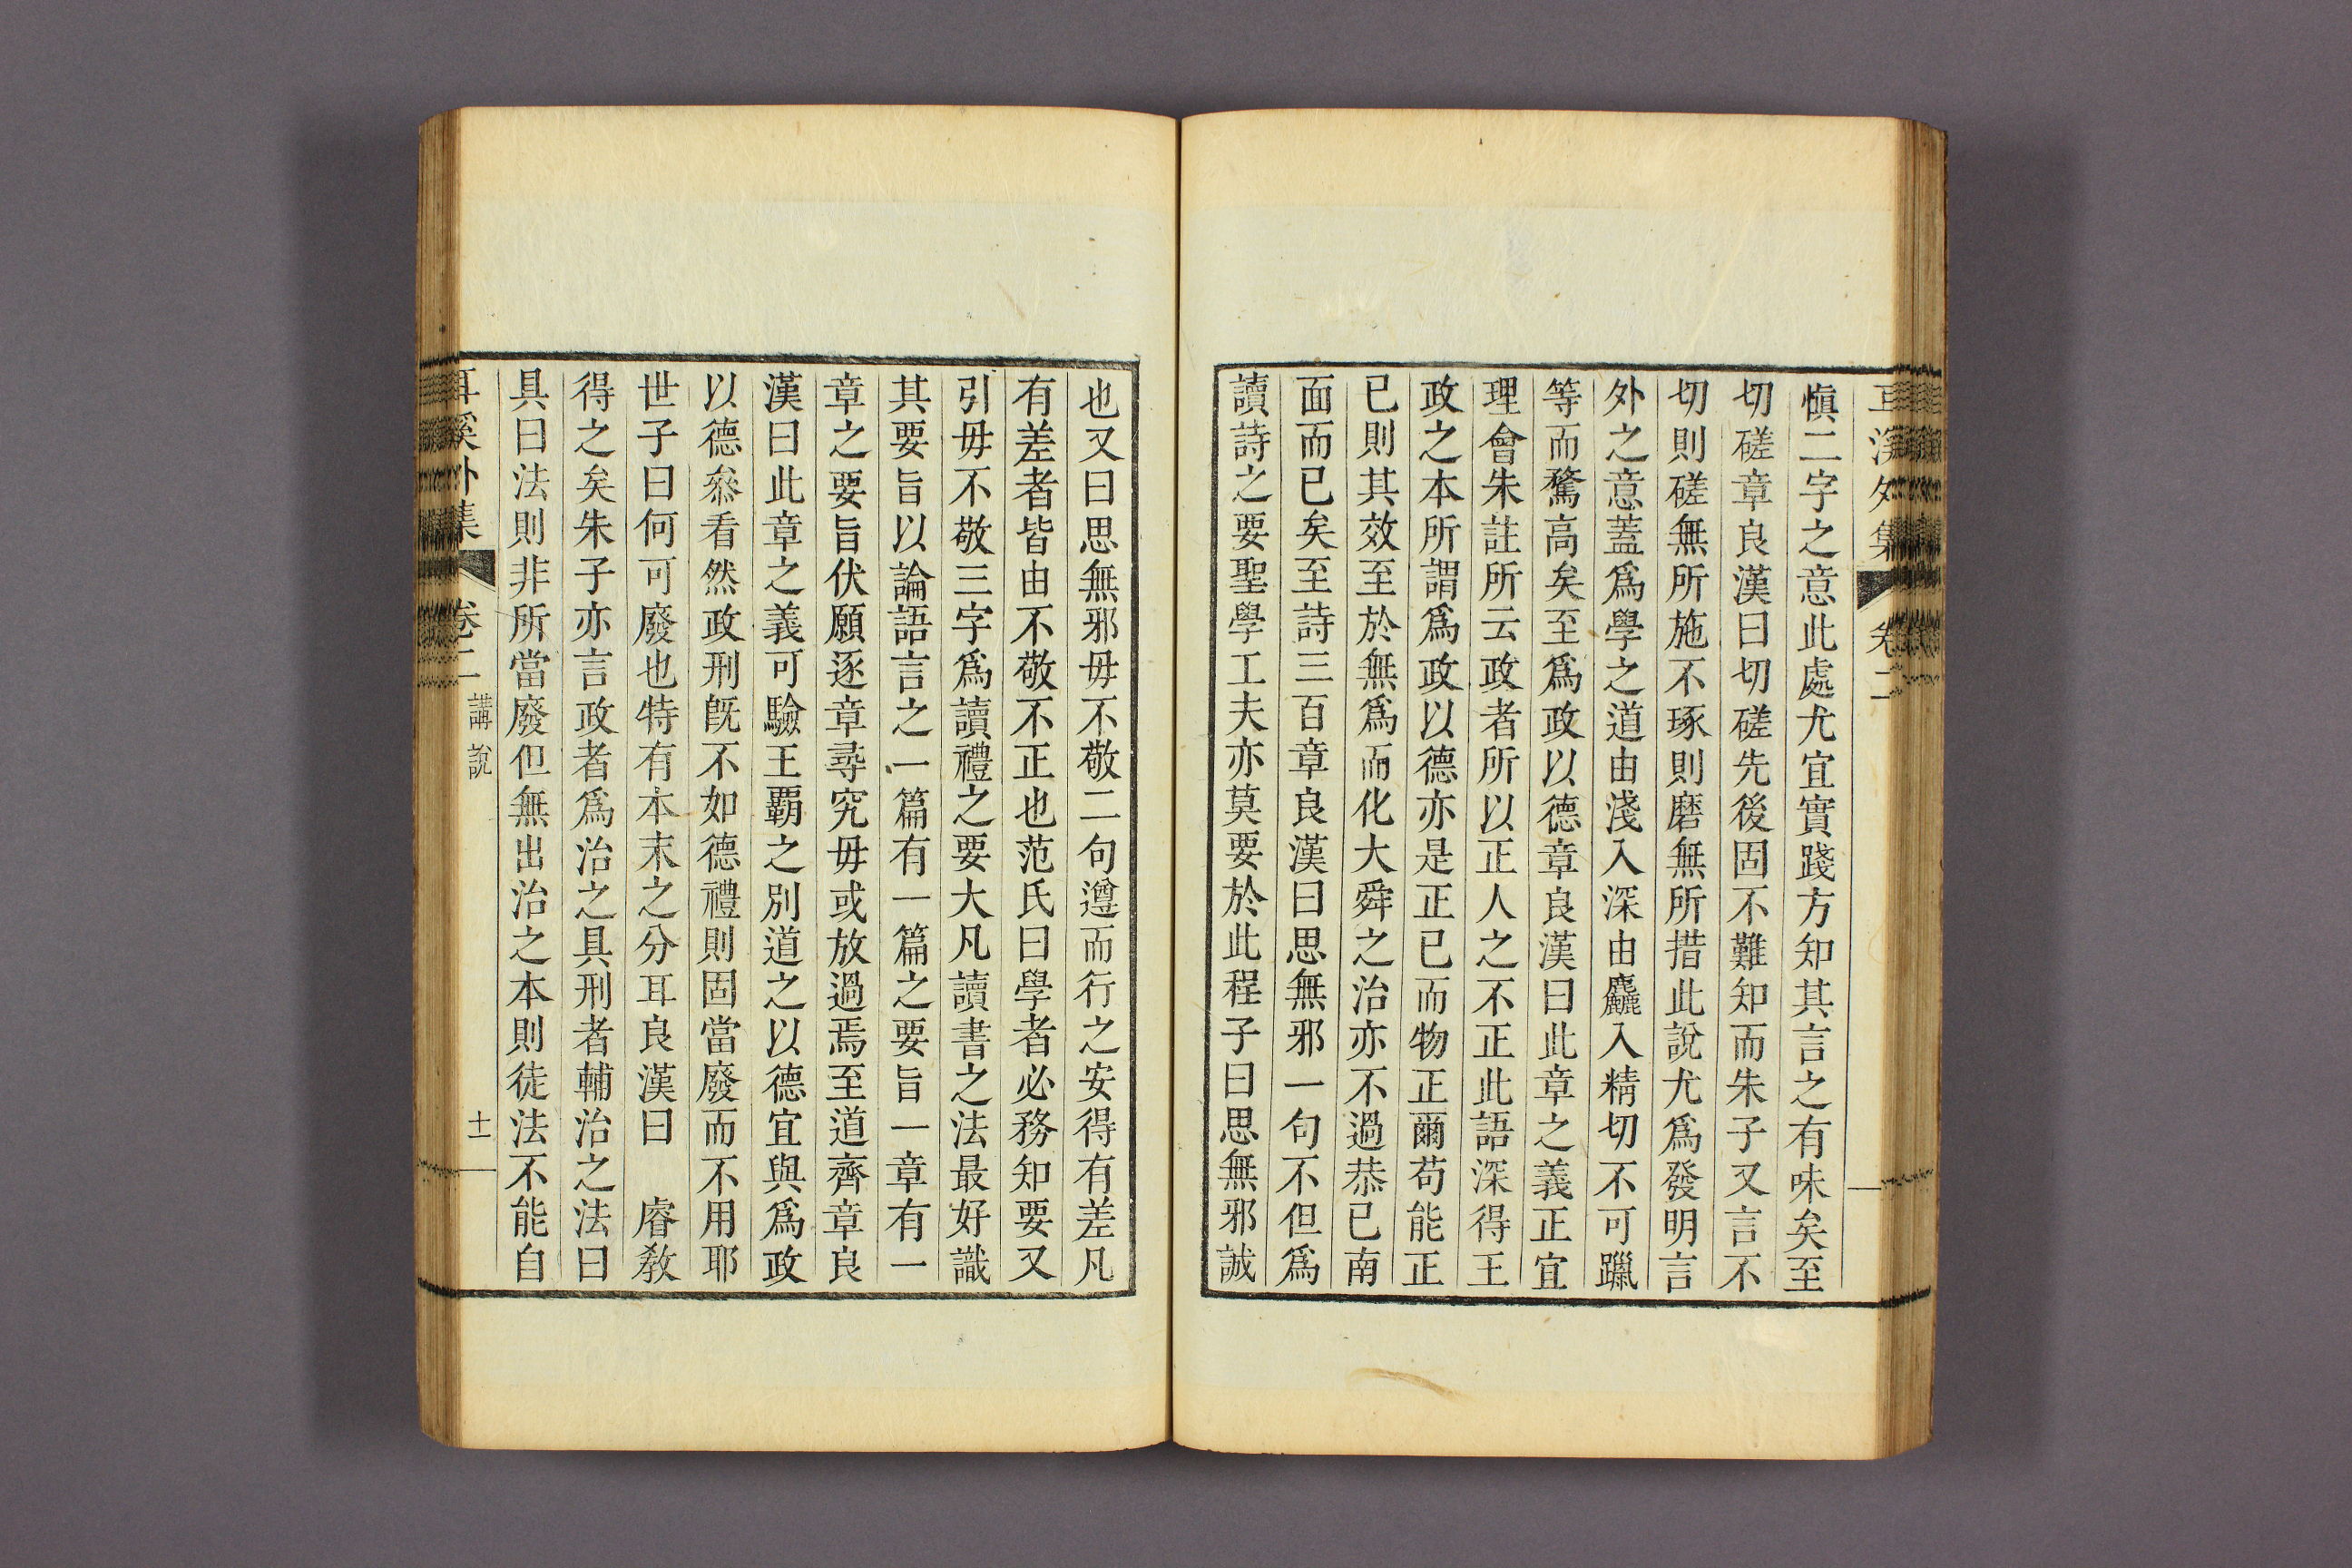 耳溪外集 卷二
愼二字之意此處尤宜實踐方知其言之有味矣至
切磋章良漢曰切磋先後固不難知而朱子又言不
切則磋無所施不琢則磨無所措此說尤爲發明言
外之意蓋爲學之道由淺入深由麤入精切不可躐
等而騖高矣至爲政以德章良漢曰此章之義正宜
理會朱註所云政者所以正人之不正此語深得王
政之本所謂爲政以德亦是正已而物正爾苟能正
已則其效至於無爲而化大舜之治亦不過恭已南
面而已矣至詩三百章良漢曰思無邪一句不但爲
讀詩之要聖學工夫亦莫要於此程子曰思無邪誠
也又曰思無邪毋不敬二句遵而行之安得有差凡
有差者皆由不敬不正也范氏曰學者必務知要又
引毋不敬三字爲讀禮之要大凡讀書之法最好識
其要旨以論語言之一篇有一篇之要旨一章有一
章之要旨伏願逐章尋究毋或放過焉至道齊章良
漢曰此章之義可驗王覇之別道之以德宜與爲政
以德叅看然政刑旣不如德禮則固當廢而不用耶
世子曰何可廢也特有本末之分耳良漢曰 睿敎
得之矣朱子亦言政者爲治之具刑者輔治之法曰
具曰法則非所當廢但無出治之本則徒法不能自
耳溪外集 卷二 講說 十一